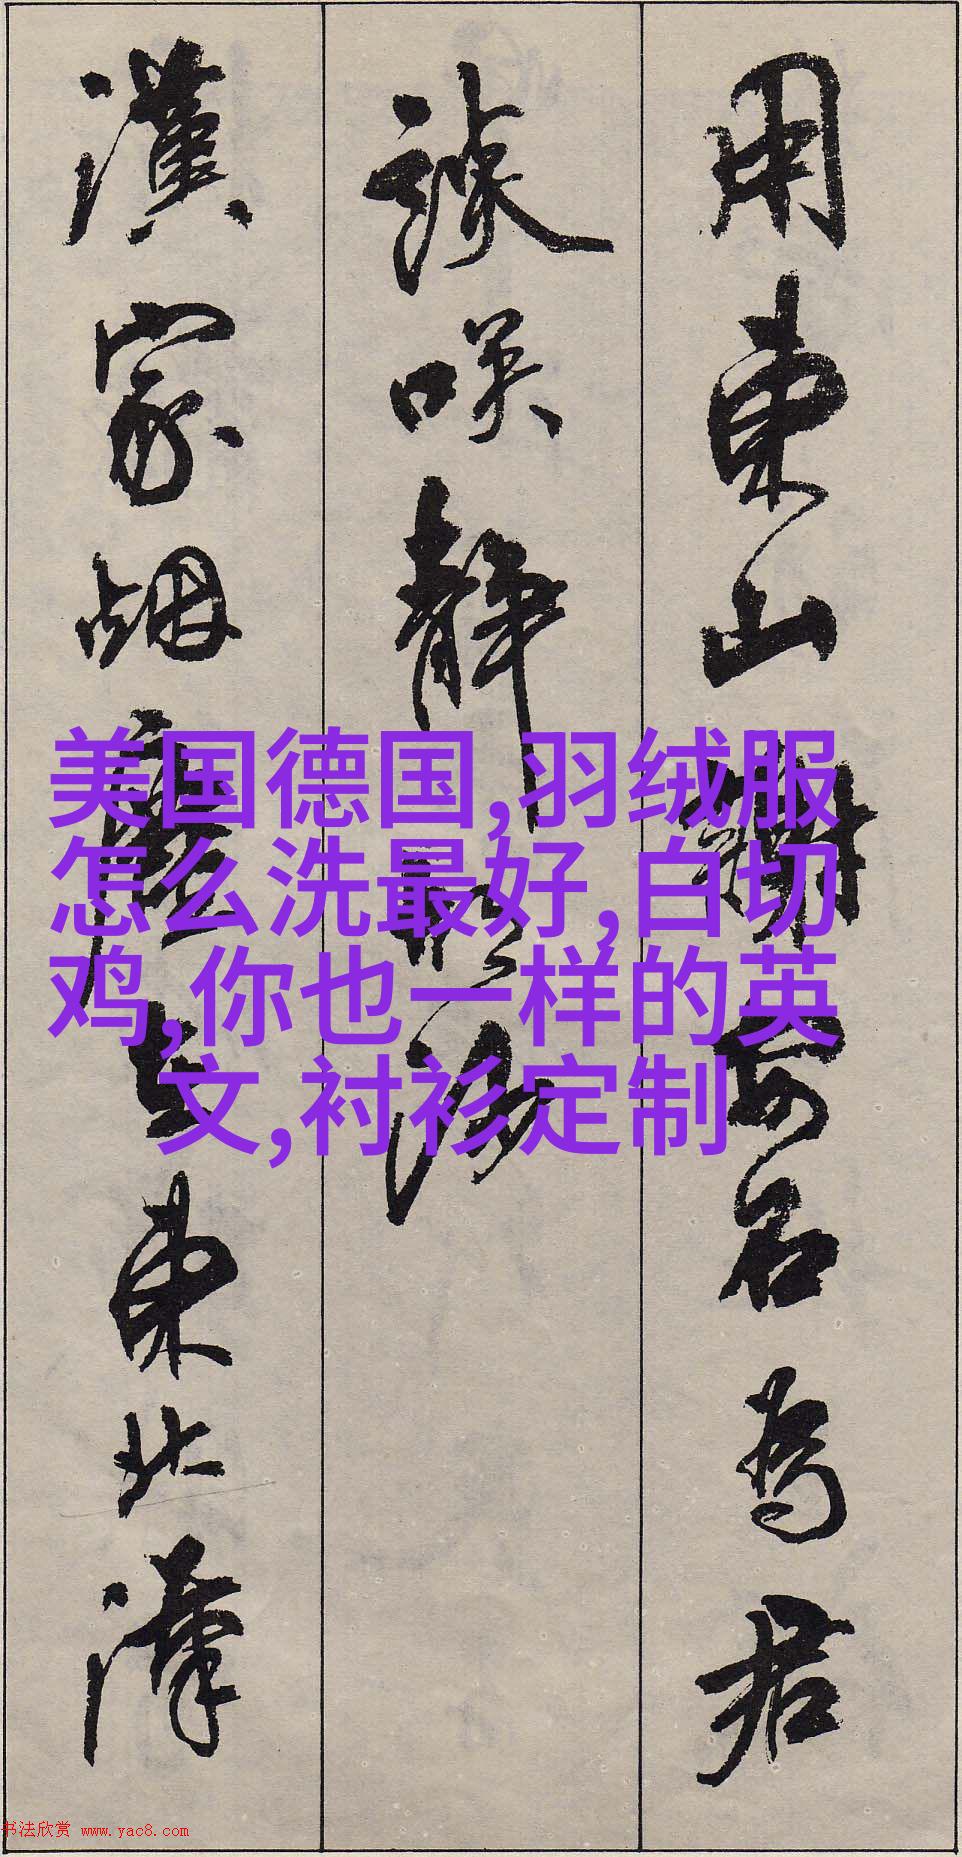 用東山謝安石為君
談咲靜胡沙
漢家烟塵在東北漢
美国德国,羽绒服
怎么洗最好,白切
鸡,你也一样的英
文,衬衫定制
书法欣赏 www.yac8.com